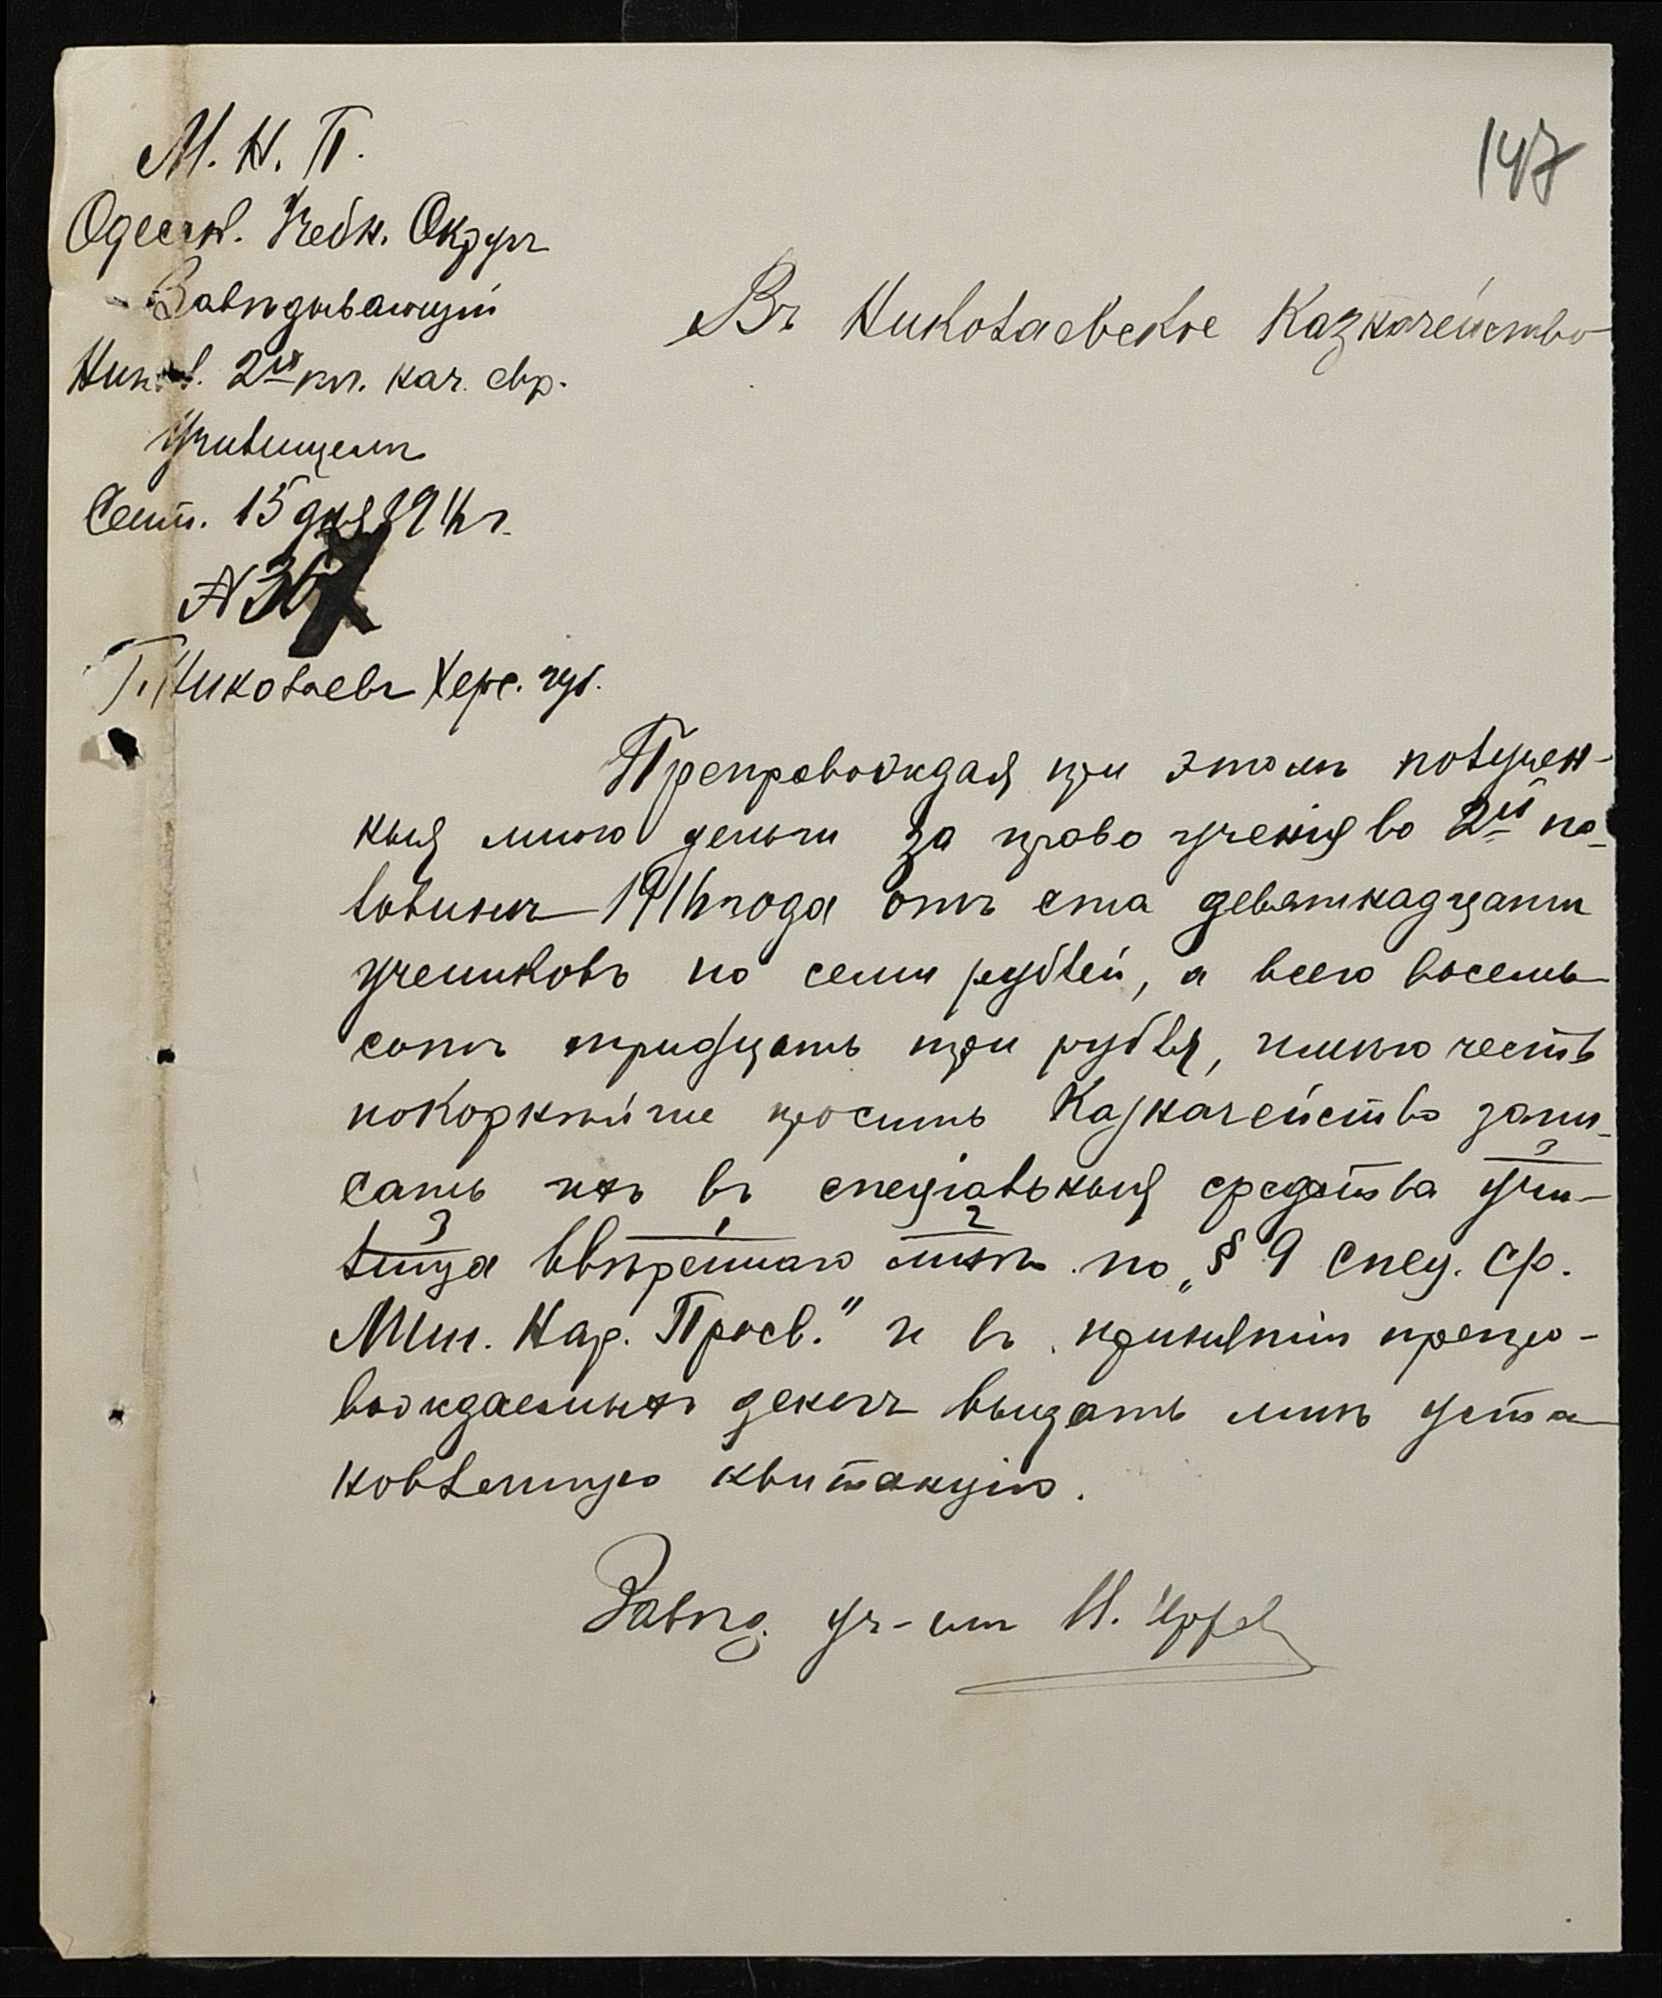 147
М. Н. П.
Одесск. Учебн. Округъ
Завѣдывающій
Никол. 2ᵐъ нач. евр.
Училищемъ
Сент. 15 дня 191 г.
№
Г. Николаевъ Херс. губ.
Въ Николаевское Казначейство
Препровождая при этомъ получен-
ныя мною деньги за право ученія во 2й по-
ловинѣ 191 года отъ ста девятнадцати
учениковъ по семи рублей, а всего восемь-
сотъ тридцать три рубля, имѣю честь
покорнѣйше просить Казначейство запи-
сать ихъ въ спеціальныя средства учи-
лища ввѣреннаго мнѣ по „§ 9 Спец. Ср.
Мин. Нар. Просв." и въ принятіи препро-
вождаемыхъ денегъ выдать мнѣ уста-
новленную квитанцію.
Завѣд. уч-емъ И.